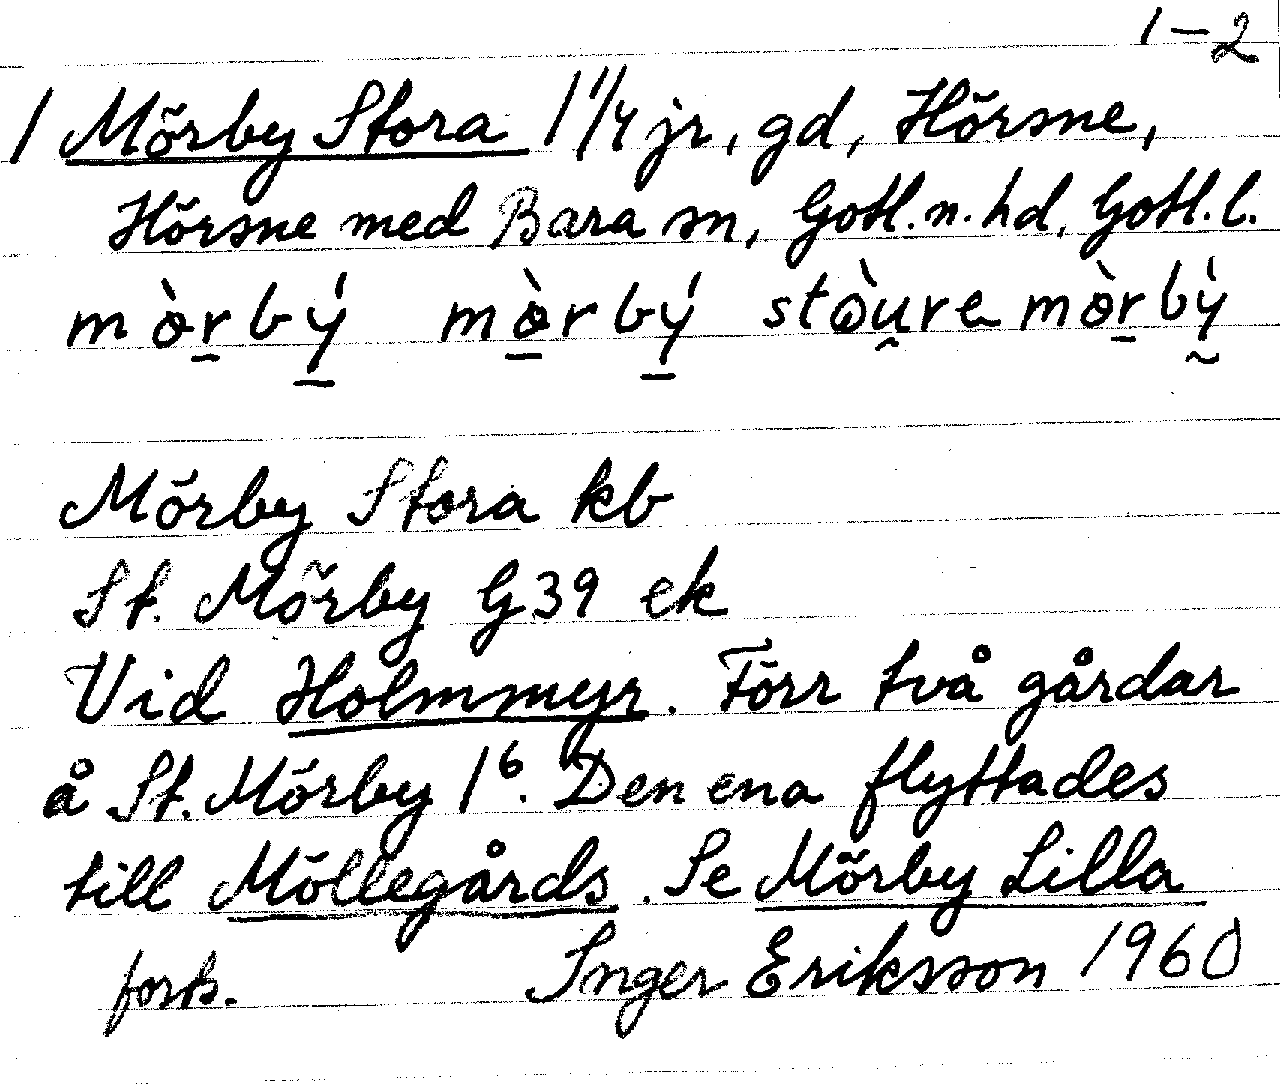 1-2
1 Mörby Stora 1 1/4 jr, gd, Hörsne,
Hörsne med Bara sn, Gotl. n. hd, Gotl. l.
mòrbý mòrbý stòure mòrbý
Mörby Stora kb
St. Mörby G39 ek
Vid Holmmyr. Förr två gårdar
å St. Mörby 1⁶. Den ena flyttades
till Möllegårds. Se Mörby Lilla
forts. Inger Eriksson 1960